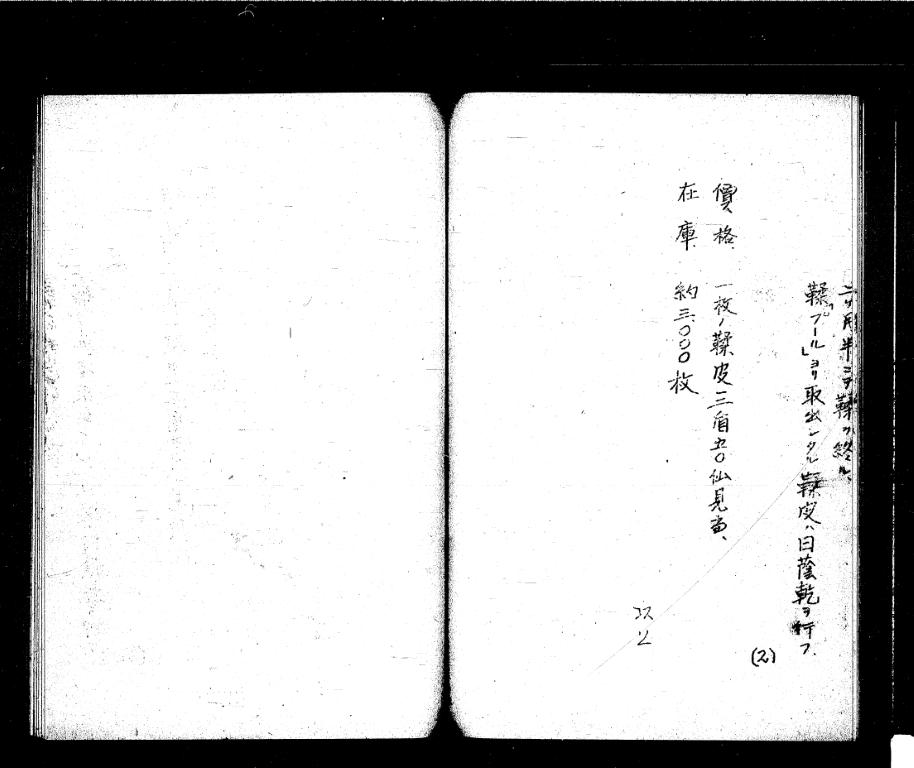 二ヶ月半ニテ鞣ヲ終ル、
鞣「プール」ヨリ取出シタル鞣皮ハ日蔭乾ヲ行フ.
(2)
價格 一枚ノ鞣皮三盾五〇仙見當、
在庫 約三、〇〇〇枚